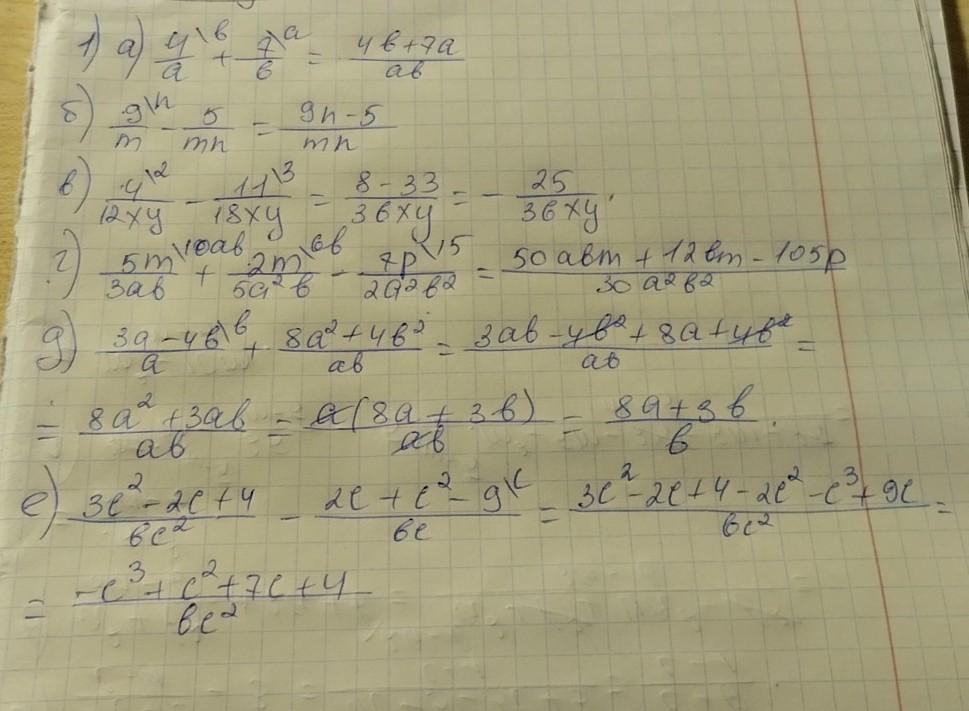 1) а) 4\в/a + 7\a/в = 4в+7a/aв
б) 9\n/m - 5/mn = 9n-5/mn
в) 4\2/12xy - 11\3/18xy = 8-33/36xy = - 25/36xy.
г) 5m\10aв/3aв + 2m\6в/5a²в - 7p\15/2a²в² = 50aвm + 12вm - 105p/30a²в²
д) 3a-4в\в/a + 8a²+4в²/aв = 3aв-4в²+8a+4в²/aв =
= 8a²+3aв/aв = a(8a+3в)/aв = 8a+3в/в.
е) 3c²-2c+4/вc² - 2c+c²-9\c/вc = 3c²-2c+4-2c²-c³+9c/вc² =
= -c³+c²+7c+4/вc²